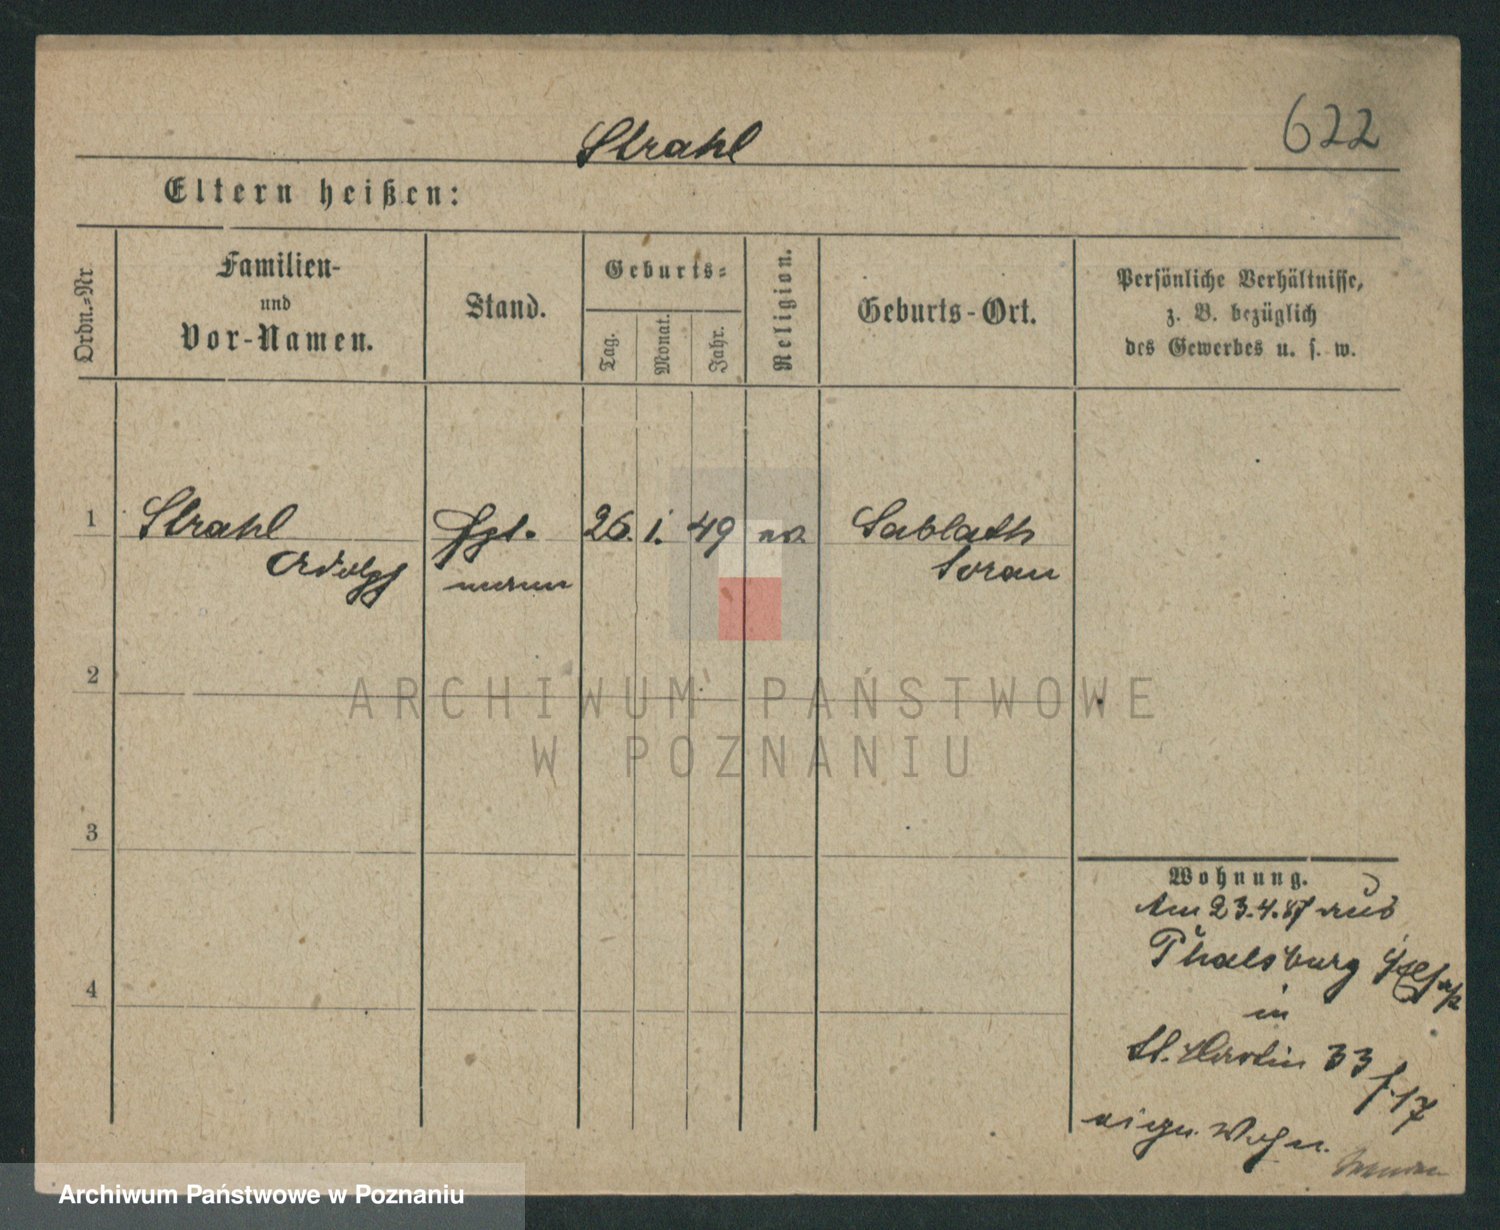 622
Strahl
Eltern heißen:
Ordn.-Nr.
Familien-
und
Vor-Namen.
Stand.
Geburts-
Tag.
Monat.
Jahr.
Religion.
Geburts-Ort.
Persönliche Verhältnisse,
z. B. bezüglich
des Gewerbes u. s. w.
1
Strahl
Adolf
26. 1. 49
ev.
Sablath
Sorau
2
ARCHIWUM PAŃSTWOWE
W POZNANIU
3
4
Wohnung.
Am 23.4.87 aus
Phalsburg
in
St. Martin 33
eigne Wohn.
Archiwum Państwowe w Poznaniu